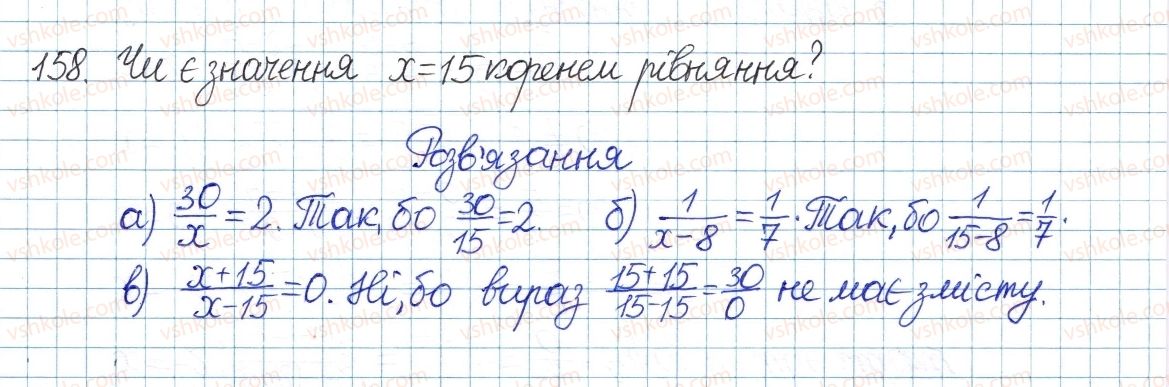 158. Чи є значення x=15 коренем рівняння?
Розв'язання
а) 30/x = 2. Так, бо 30/15 = 2. б) 1/(x-8) = 1/7. Так, бо 1/(15-8) = 1/7.
в) (x+15)/(x-15) = 0. Ні, бо вираз (15+15)/(15-15) = 30/0 не має змісту.